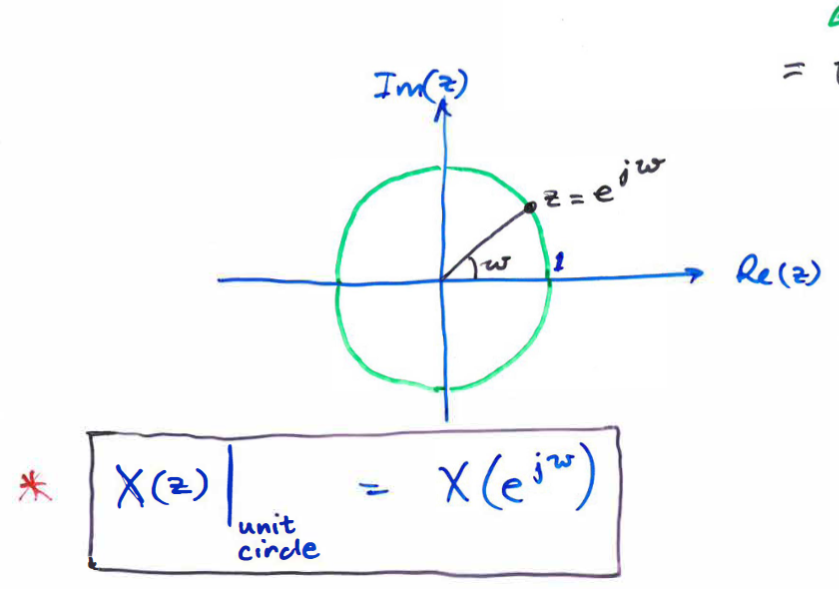 =
Im(z)
z = e^{jω}
ω
1
Re(z)
* X(z)|_{unit circle} = X(e^{jω})